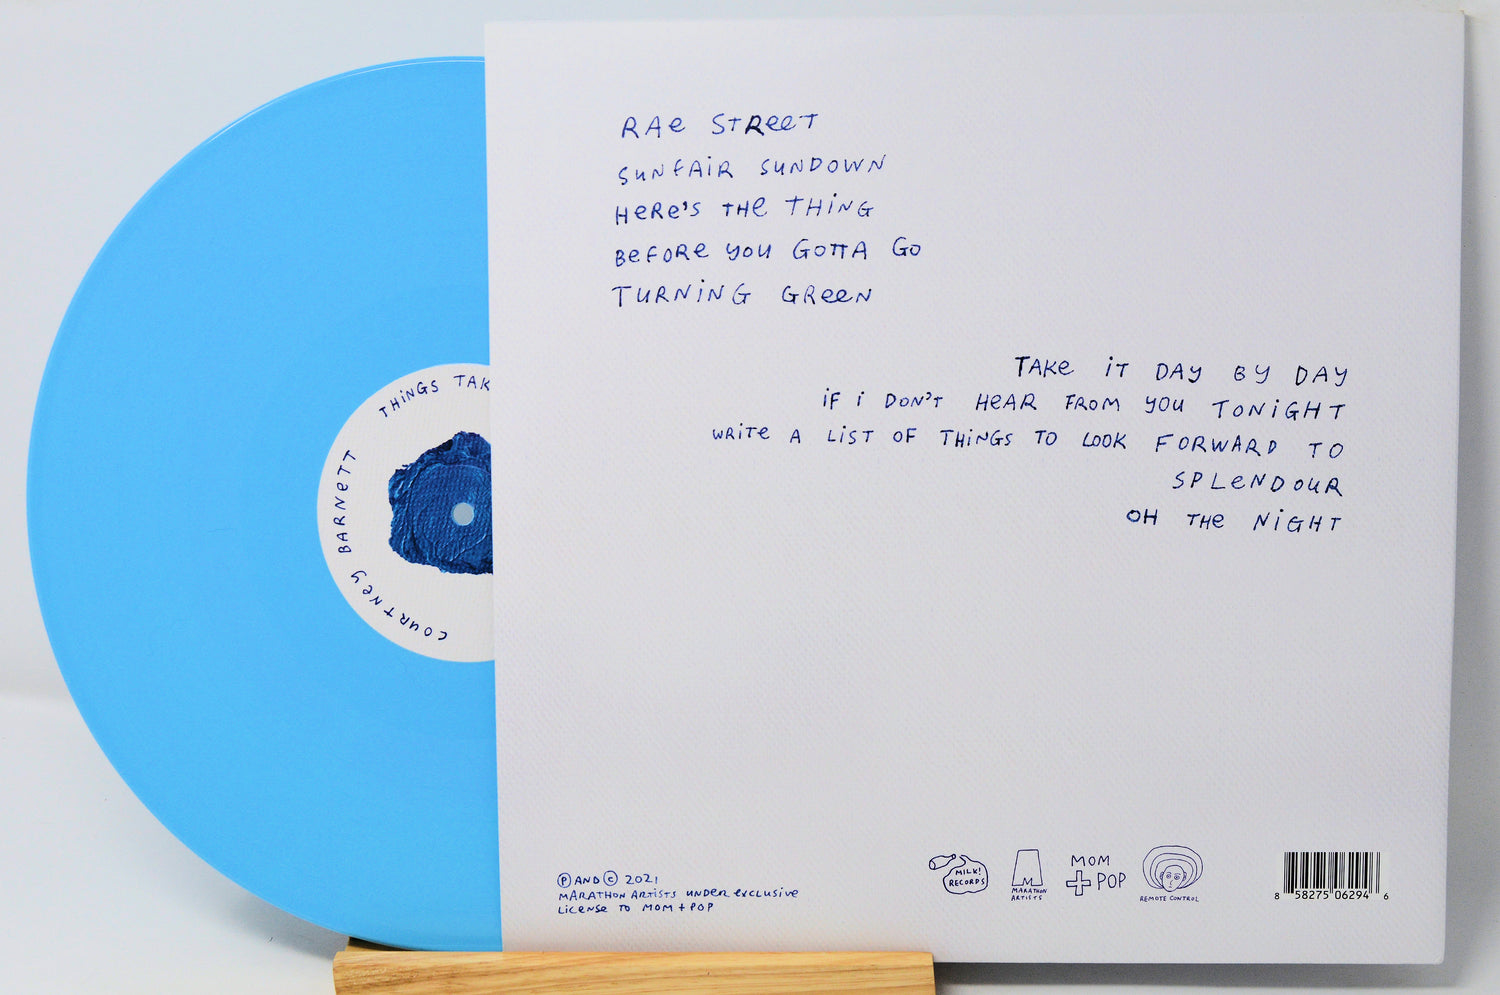 RAe STReeT
SUNFAiR SUNDOWN
HeRe'S THe THiNG
BeFORe YOU GOTTA GO
TURNiNG GReeN
TAKe iT DAY BY DAY
iF i DON'T HeAR FROM YOU TONiGHT
WRiTe A LiST OF THiNGS TO LOOK FORWARD TO
SPLeNDOUR
OH THe NiGHT
THiNGS TAK
COURTNeY BARNeTT
Ⓟ AND © 2021
MARATHON ARTiSTS UNDeR eXCLUSiVe
LiCeNSe TO MOM + POP
MiLK!
RECORDS
MARATHON
ARTiSTS
MOM
+ POP
REMOTE CONTROL
8 58275 06294 6